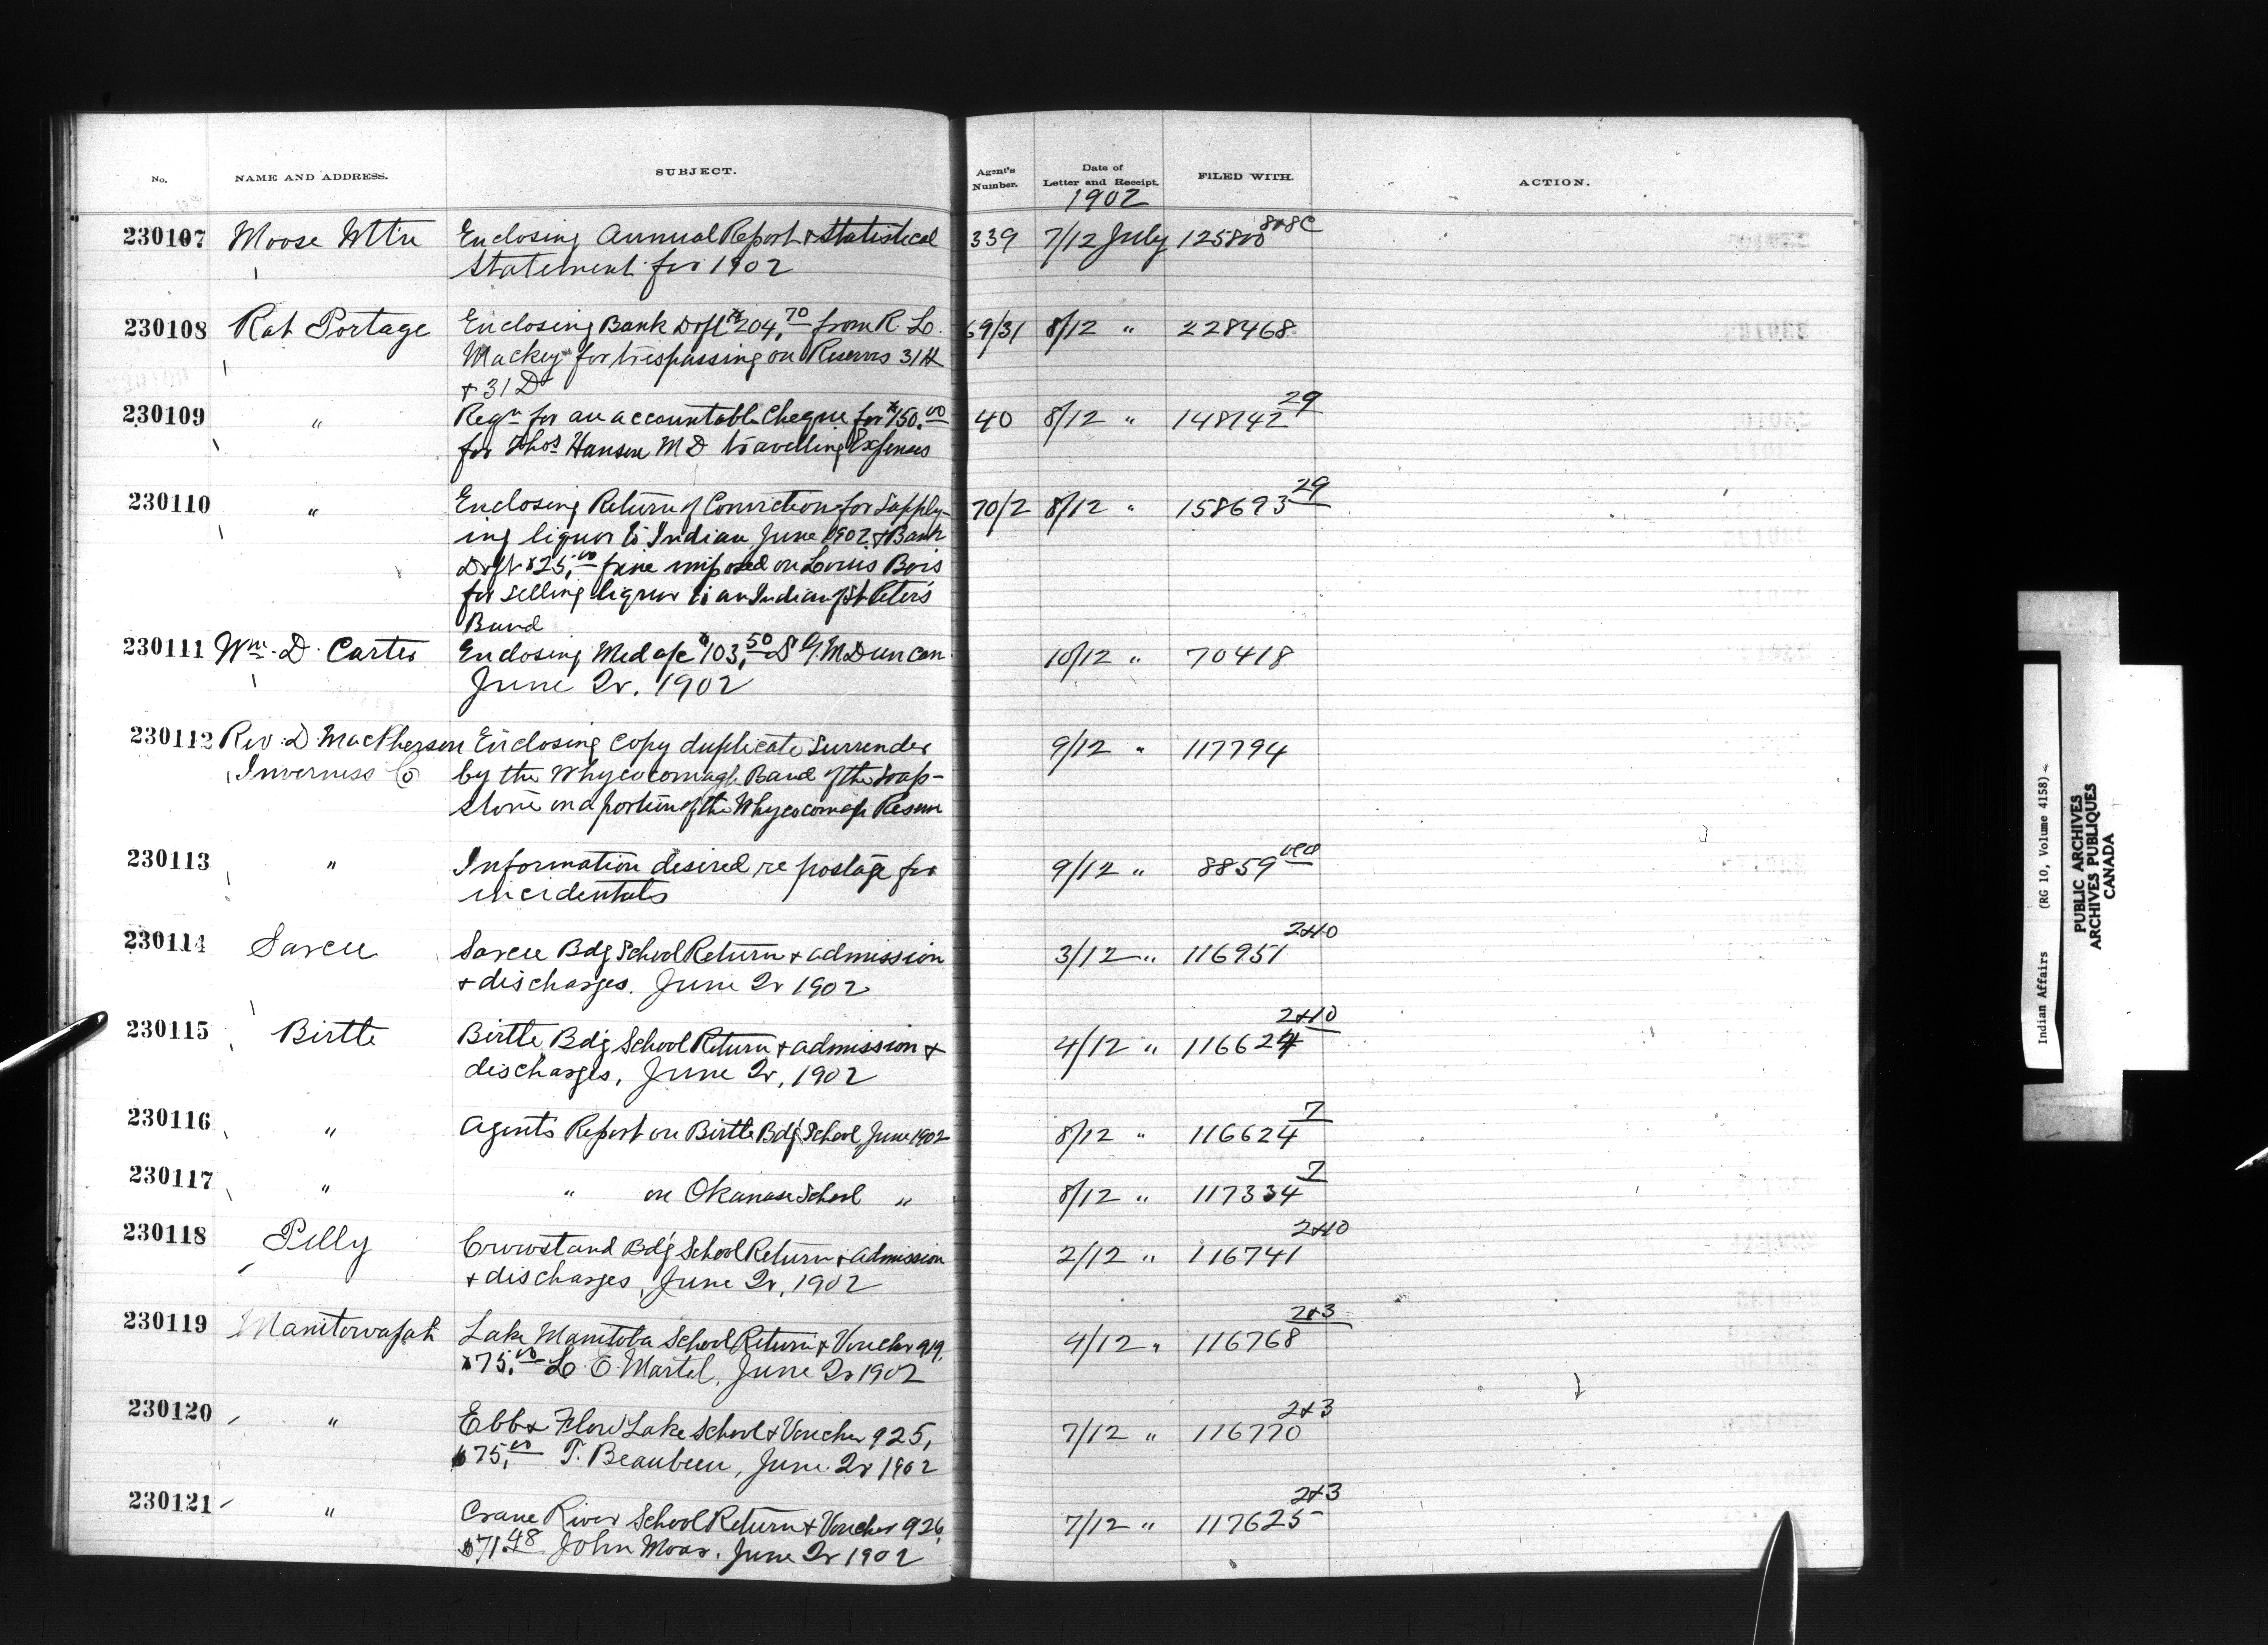 No. NAME AND ADDRESS. SUBJECT. Agent's Number. Date of Letter and Receipt. FILED WITH. ACTION.
1902
230107 Moose Mt'n Enclosing Annual Report & Statistical 339 7/12 July 125800 808C
Statement for 1902
230108 Rat Portage Enclosing Bank Dr'ft $204.70 from R. L. 69/31 8/12 " 228468
Mackey for trespassing on Reserves 31H
& 31D
230109 " Reqn for an accountable Cheque for $150.00 40 8/12 " 148142 29
for Thos Hansen M D travelling Expenses
230110 " Enclosing Return of Conviction for Supply- 70/2 8/12 " 158693 29
ing liquor to Indian June 1902 & Bank
Dr'ft $25.00 fine imposed on Louis Bois
for selling liquor to an Indian of St Peter's
Band
230111 Wm. D. Carter Enclosing Med a/c $103.50 G. M Duncan 10/12 " 70418
June Qr. 1902
230112 Rev. D. MacPherson Enclosing Copy duplicate Surrender 9/12 " 117794
Inverness Co by the Whycocomagh Band of the Soap-
stone on a portion of the Whycocomagh Reserve
230113 " Information desired re postage for 9/12 " 8859
incidentals
230114 Sarcee Sarcee Bdg School Return & admission 3/12 " 116951 2&10
& discharges. June Qr 1902
230115 Birtle Birtle Bdg School Return & admission & 4/12 " 116624 2&10
discharges, June Qr, 1902
230116 " Agents Report on Birtle Bdg School June 1902 8/12 " 116624 7
230117 " " on Okanase School " 8/12 " 117334 7
230118 Pelly Crowstand Bd'g School Return & admission 2/12 " 116741 2&10
& discharges, June Qr, 1902
230119 Manitowapah Lake Manitoba School Return & Voucher 919, 4/12 " 116768 2&3
$75.00 L. E. Martel, June Qr 1902
230120 " Ebb & Flow Lake School & Voucher 925, 7/12 " 116770 2&3
$75.00 T. Beaubien, June Qr 1902
230121 " Crane River School Return & Voucher 926, 7/12 " 117625 2&3
$71.48 John Moar. June Qr 1902
Indian Affairs (RG 10, Volume 4158)
PUBLIC ARCHIVES
ARCHIVES PUBLIQUES
CANADA